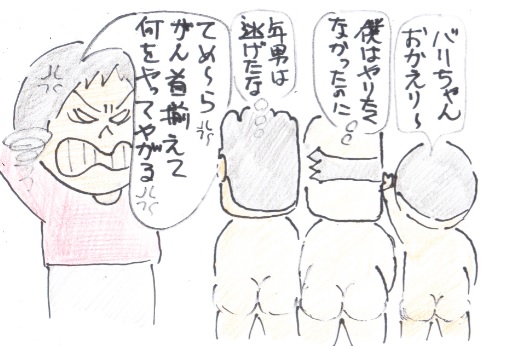 バリちゃん
おかえり〜
僕はやりたく
なかったのに
年男は
逃げたな
てめ〜ら
がん首揃えて
何をやってやがる